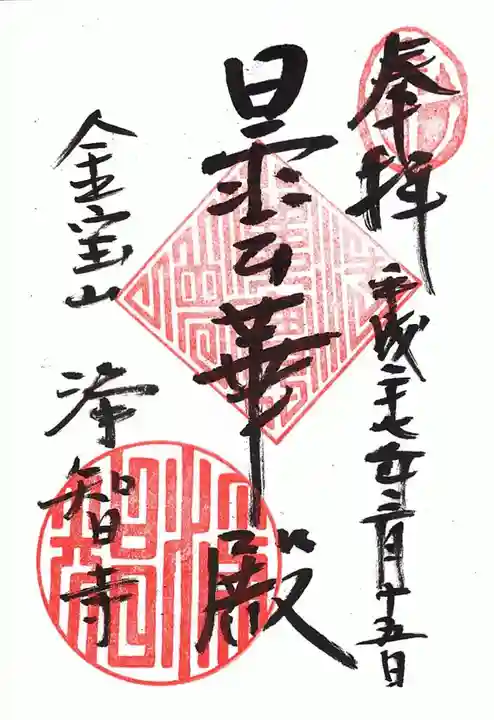 奉拝
平成二十七年三月十五日
曇華殿
金宝山
浄智寺